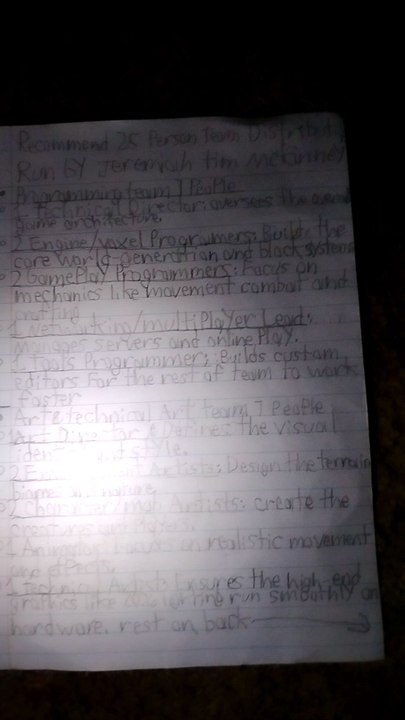 Recommend 25 Person Team Distribut
Run by Jeremiah tim Mckinney
Programming team 7 People
1 Technical Director: oversees the overall
game architecture.
2 Engine/voxel Programmers: Builds the
core world-generation and block systems
2 GamePlay Programmers: Focus on
mechanics like movement combat and
crafting
1 Networking/multiPlayer Lead:
Manages servers and online Play.
1 Tools Programmer: Builds custom
editors for the rest of team to work
faster
Art & technical Art team 7 People
1 Art Director: Defines the visual
identity and style.
2 Artists: Design the terrain
biomes and nature.
2 Character/mob Artists: create the
creatures and Players.
1 Animator: on realistic movement
and effects.
1 Technical Artist: Ensures the high-end
graphics like run smoothly on
hardware. rest on back